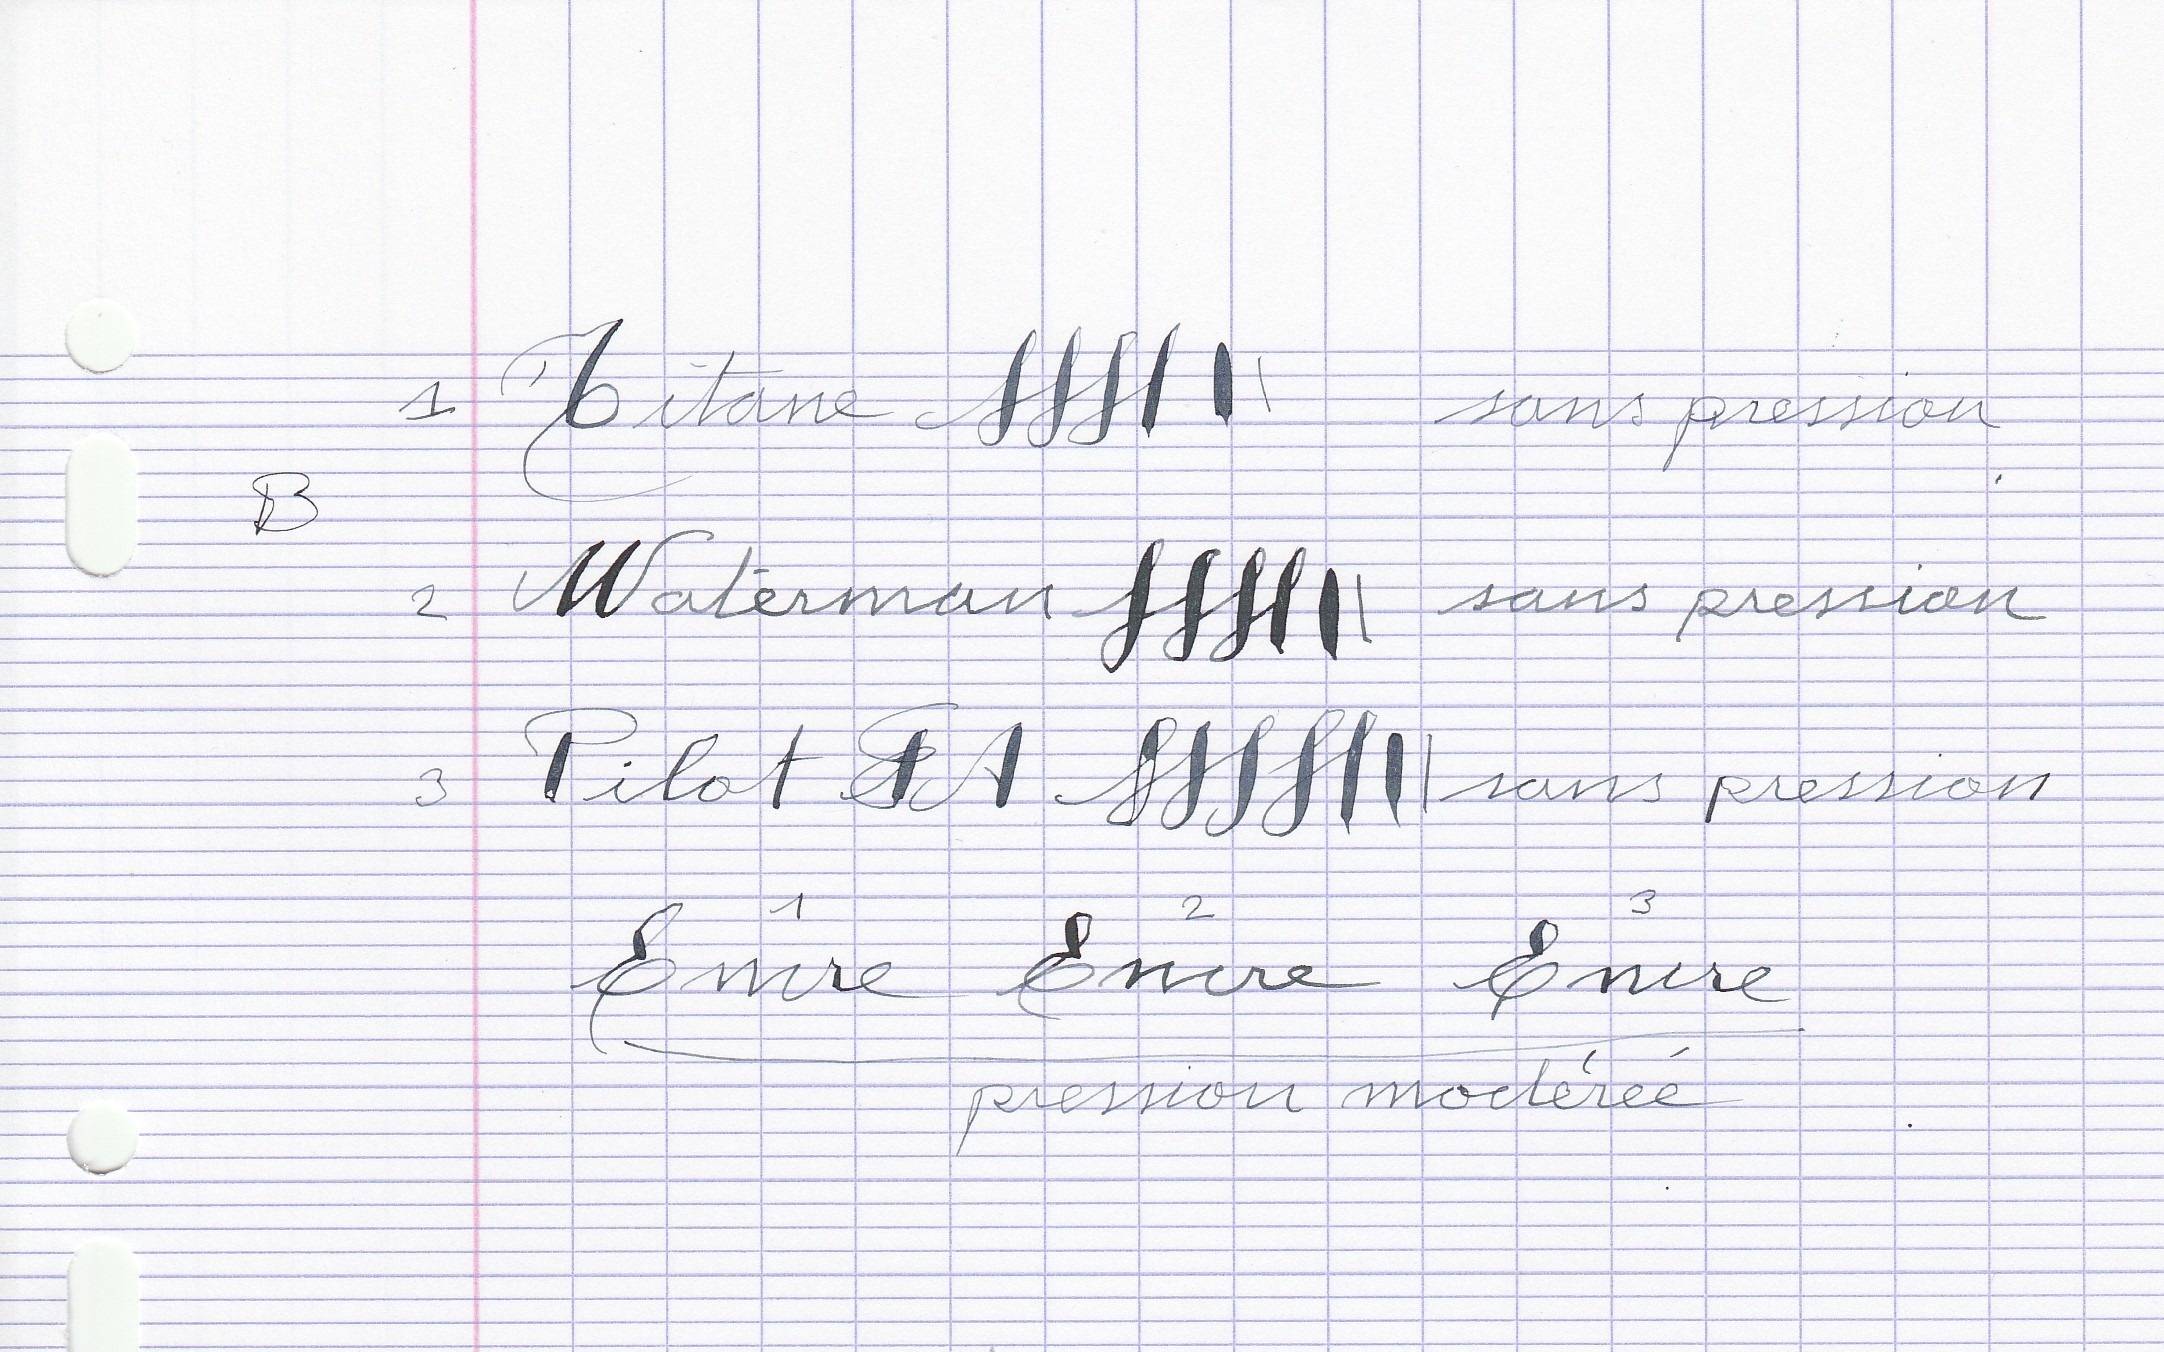 1 Titane sans pression
B
2 Waterman sans pression
3 Pilot FA sans pression
1 2 3
Encre Encre Encre
pression modérée